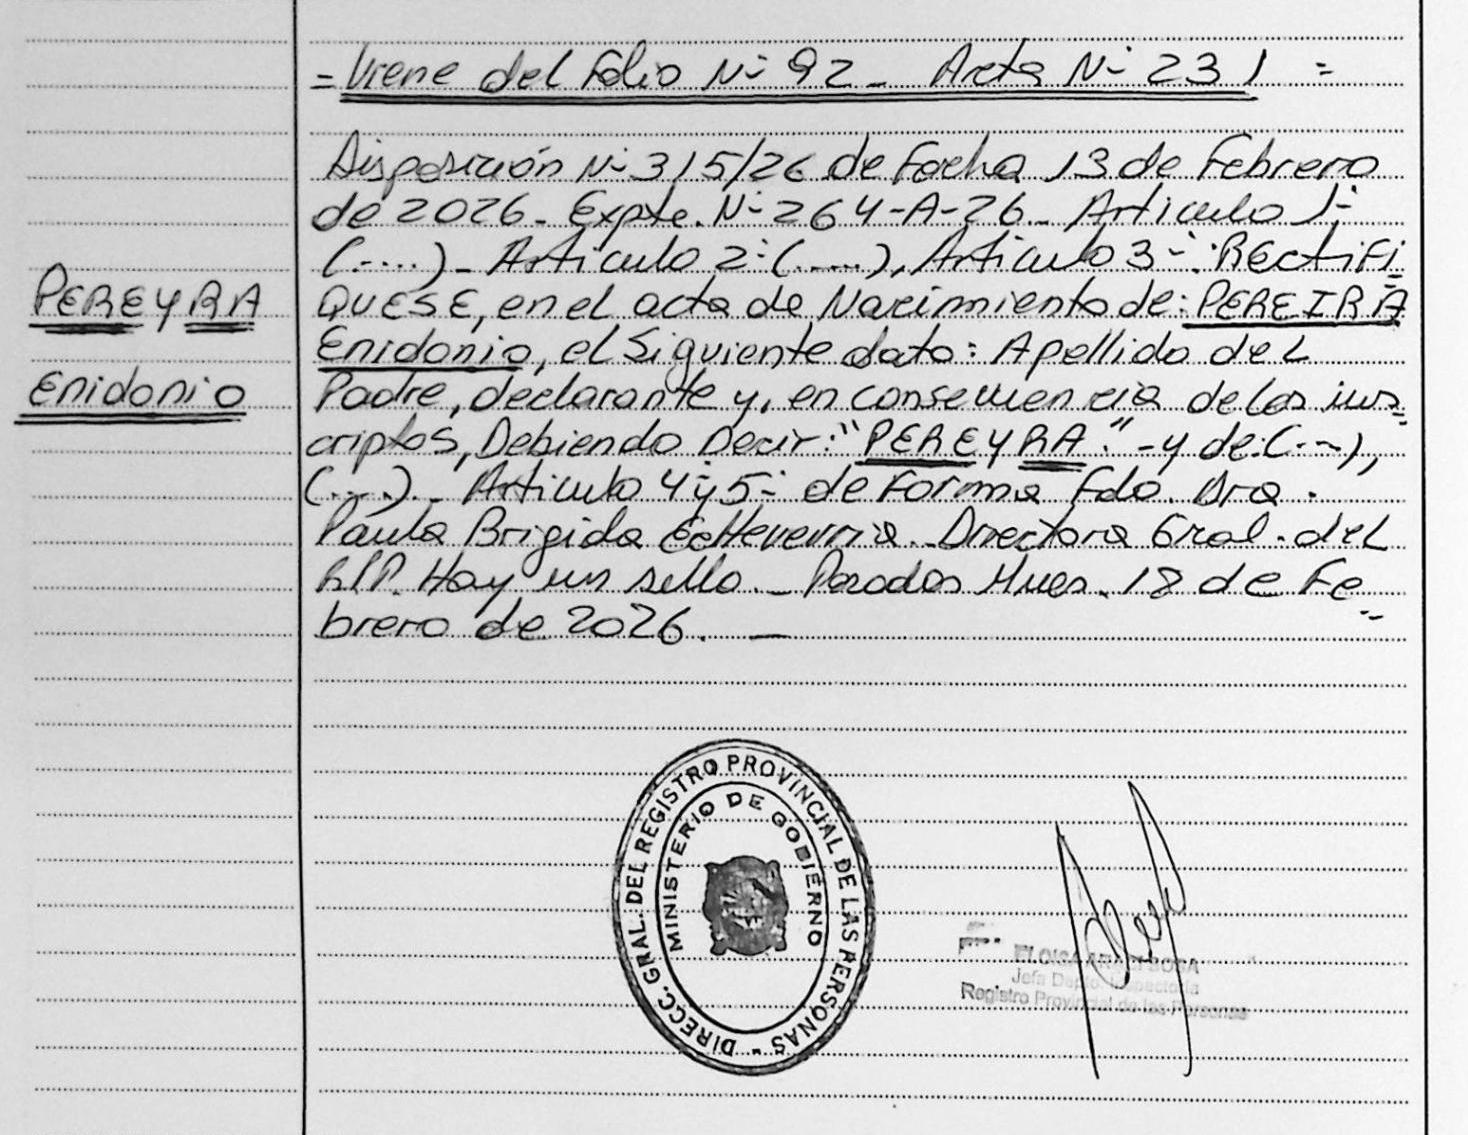 = Viene del Folio N- 92 - Acta N- 231 =
Disposición N- 315/26 de Fecha 13 de Febrero
de 2026 - Expte. N- 264-A-26 - Articulo 1-
(.....) - Articulo 2- (.....), Articulo 3-: RECTIFI
QUESE, en el acta de Nacimiento de: PEREIRA
Enidonio, el Siguiente dato: Apellido del
Padre, declarante y, en consecuencia de los ins
criptos, Debiendo Decir: "PEREYRA" - y de: (...),
(....) - Articulo 4 y 5- de Forma Fdo. Dra.
Paula Brigida Echeverria. Directora Gral. del
R.P.P. Hay un sello. - Posadas Mnes. 18 de Fe
brero de 2026. -
PEREYRA
Enidonio
DIRECC. GRAL. DEL REGISTRO PROVINCIAL DE LAS PERSONAS -
MINISTERIO DE GOBIERNO
SOSA
Jefa Depto.
Registro Provincial de las Personas